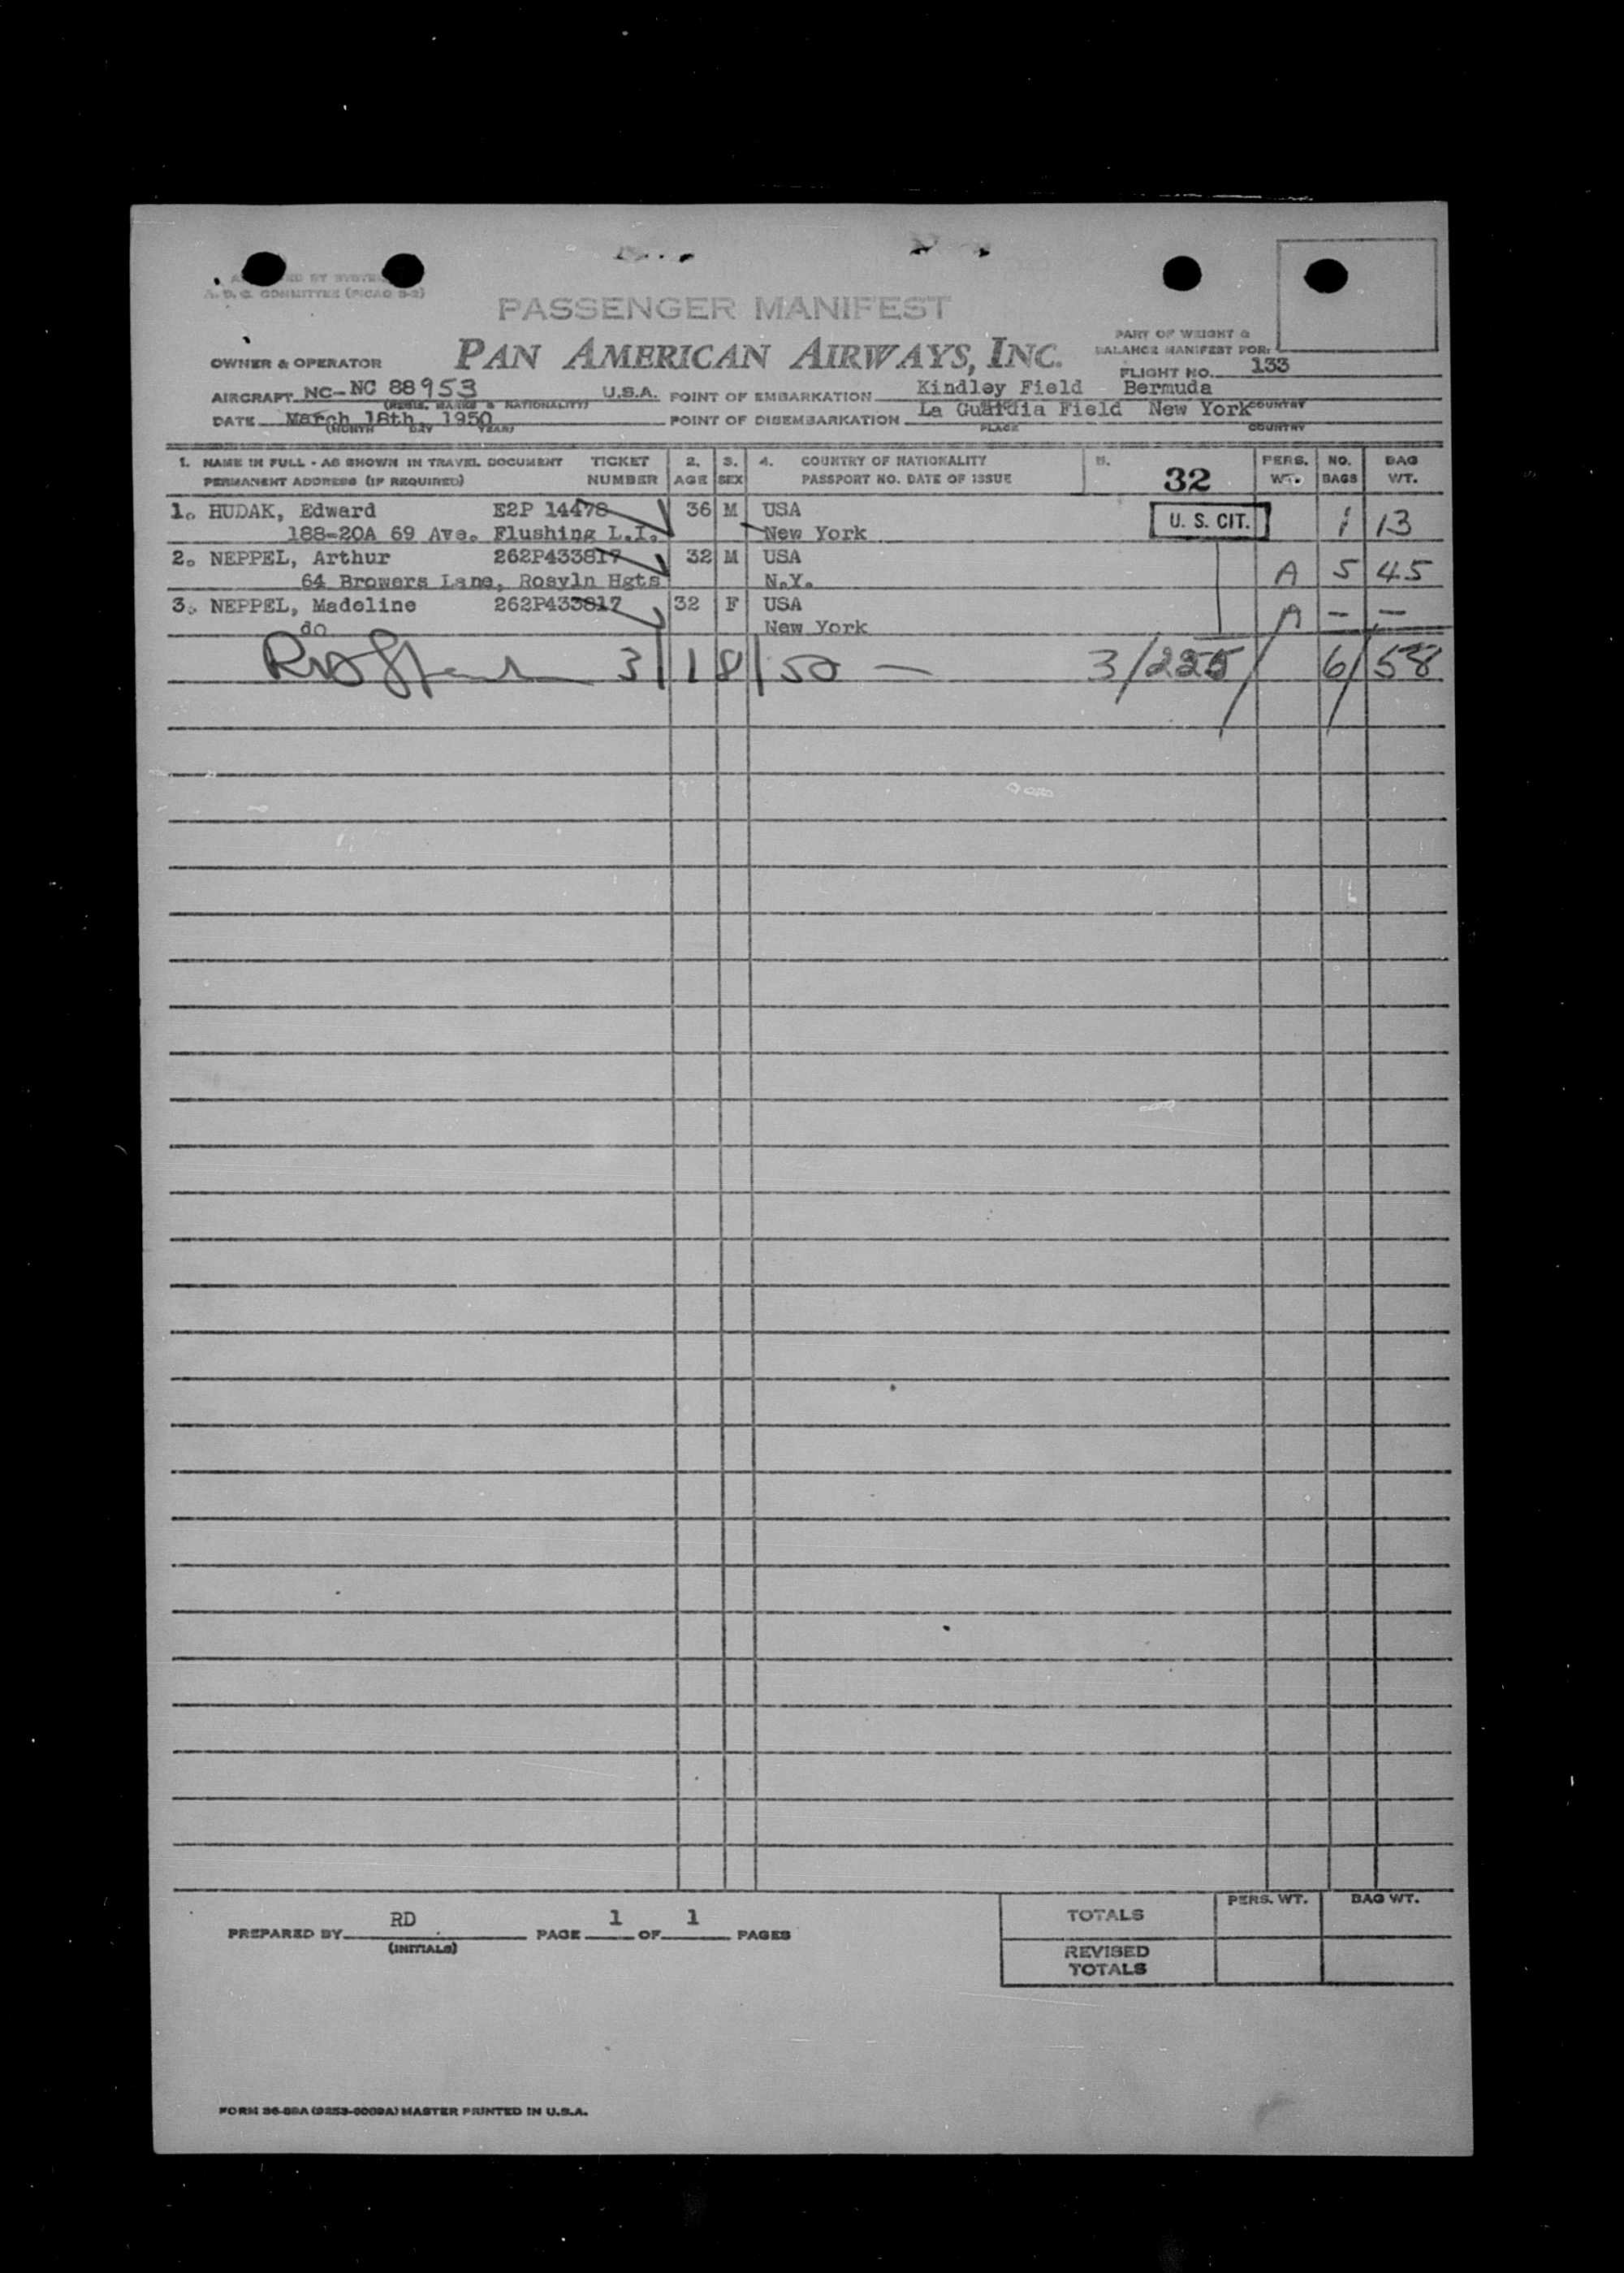 A. D. C. COMMITTEE (PICAO 3-2)
PASSENGER MANIFEST
PART OF WEIGHT &
BALANCE MANIFEST FOR:
OWNER & OPERATOR PAN AMERICAN AIRWAYS, INC.
FLIGHT NO. 133
AIRCRAFT NC-NC 88953 U.S.A. POINT OF EMBARKATION Kindley Field Bermuda
(REGIS. MARKS & NATIONALITY) PLACE COUNTRY
DATE March 18th, 1950 POINT OF DISEMBARKATION La Guardia Field New York
(MONTH DAY YEAR) PLACE COUNTRY
1. NAME IN FULL - AS SHOWN IN TRAVEL DOCUMENT TICKET 2. 3. 4. COUNTRY OF NATIONALITY 5. 32 PERS. NO. BAG
PERMANENT ADDRESS (IF REQUIRED) NUMBER AGE SEX PASSPORT NO. DATE OF ISSUE WT. BAGS WT.
1. HUDAK, Edward E2P 14478 36 M USA U. S. CIT. 1 13
188-20A 69 Ave. Flushing L.I. New York
2. NEPPEL, Arthur 262P433817 32 M USA A 5 45
64 Browers Lane, Rosyln Hgts N.Y.
3. NEPPEL, Madeline 262P433817 32 F USA A - -
do New York
3/18/50 - 3/225/ 6/58
PERS. WT. BAG WT.
TOTALS
PREPARED BY RD PAGE 1 OF 1 PAGES
(INITIALS)
REVISED
TOTALS
FORM 36-88A (9253-6009A) MASTER PRINTED IN U.S.A.